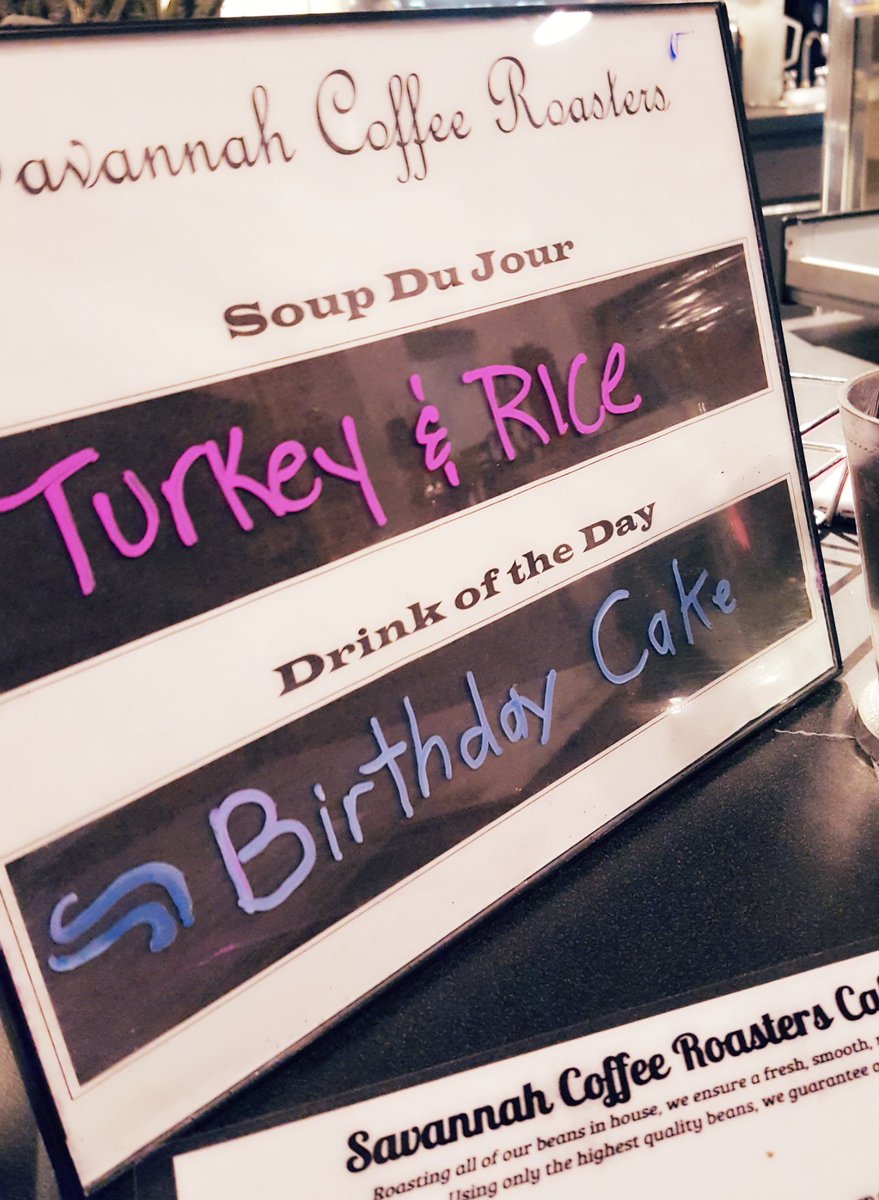 Savannah Coffee Roasters
Soup Du Jour
Turkey & Rice
Drink of the Day
Birthday Cake
Savannah Coffee Roasters
Roasting all of our beans in house, we ensure a fresh, smooth,
Using only the highest quality beans, we guarantee